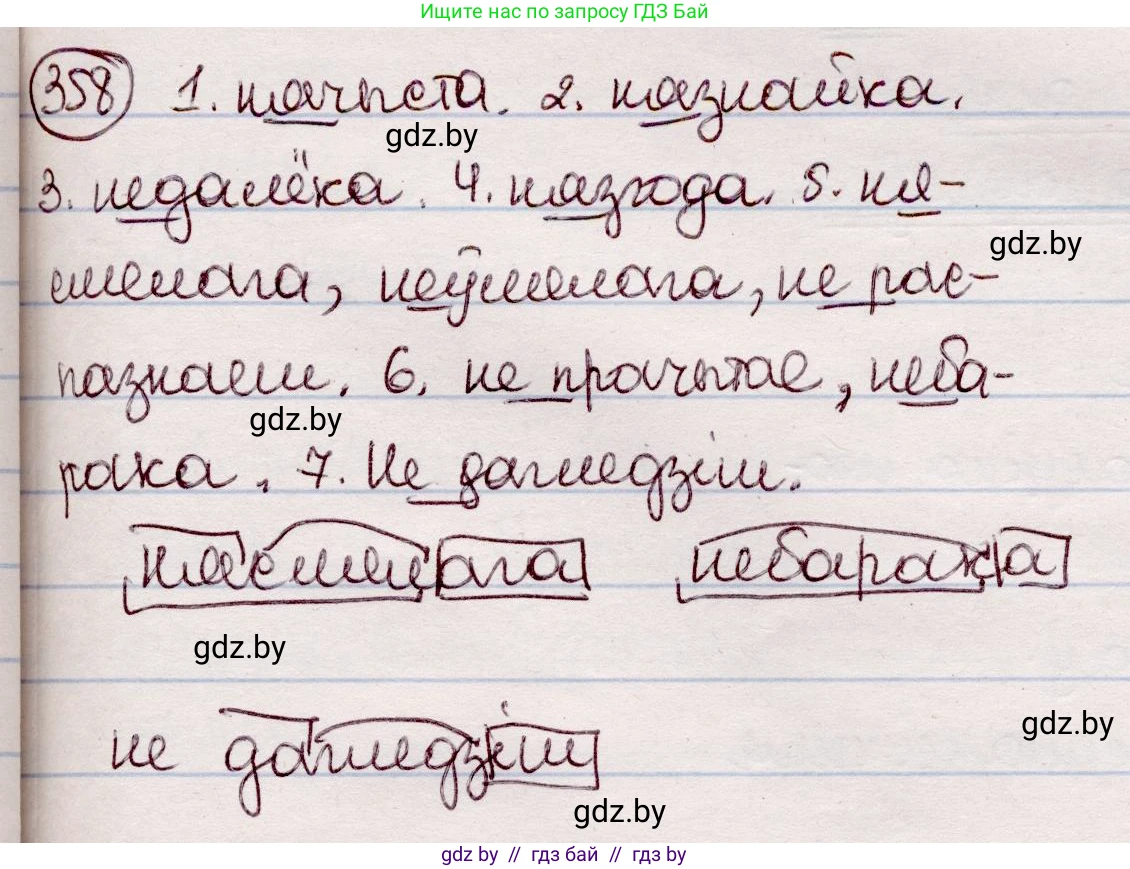 Ищите нас по запросу ГДЗ Бай
358 1. начыста. 2. назнайка.
gdz.by
3. недалёка. 4. нязгода. 5. ня-
gdz.by
смелага, неўмелага, не рас-
пазнаеш. 6. не прачытае, неба-
gdz.by
рака. 7. Не дагледзіш.
нясмелага небарака
gdz.by
gdz.by
не дагледзіш
gdz.by
gdz by // гдз бай // гдз by